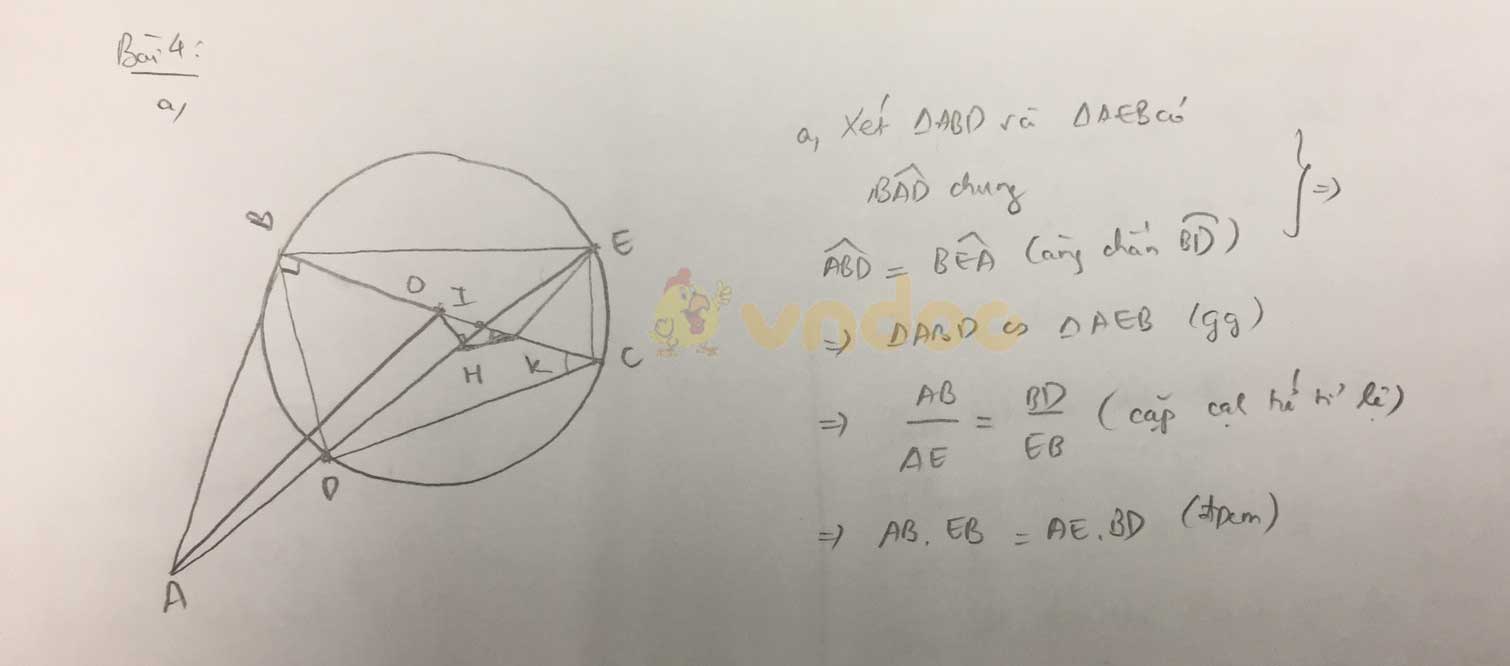 Bài 4:
a,
B
E
O I
C
H K
D
A
a, Xét ΔABD và ΔAEB có
BAD chung } =>
ABD = BEA (cùng chắn BD)
vndoc
=> ΔABD ∽ ΔAEB (gg)
=> AB/AE = BD/EB (cặp cạh tỉ lệ)
=> AB. EB = AE. BD (đpcm)